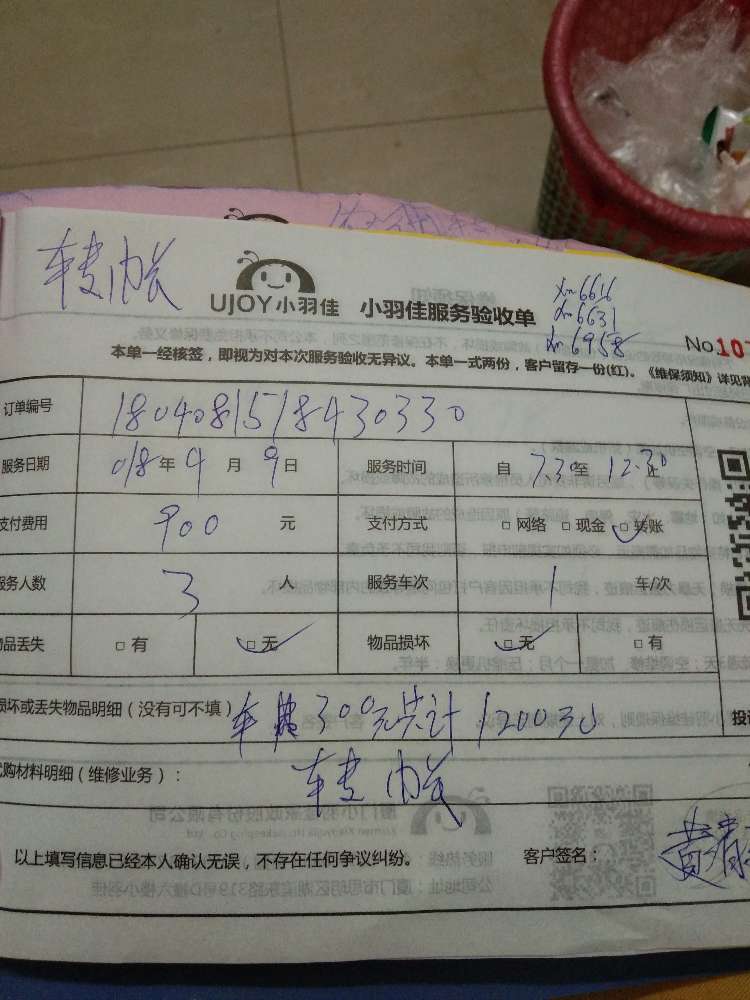 转帐
UJOY小羽佳 小羽佳服务验收单
xm6616
xm6631
xm6958
No.10
本单一经核签，即视为对本次服务验收无异议。本单一式两份，客户留存一份(红)。《维保须知》详见背
订单编号 1804081518430330
服务日期 018年4月9日 服务时间 自7.30至12.30止
支付费用 900元 支付方式 □网络 □现金 □转账
服务人数 3人 服务车次 1车/次
物品丢失 □有 □无 物品损坏 □无 □有
损坏或丢失物品明细（没有可不填） 车费300元共计1200元
投
代购材料明细（维修业务）： 转帐
以上填写信息已经本人确认无误，不存在任何争议纠纷。 客户签名： 黄